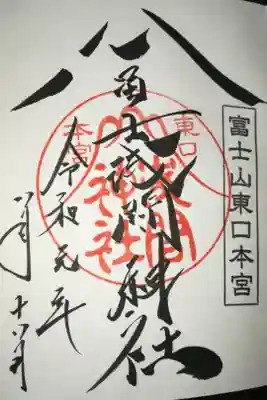 富士山東口本宮
冨士浅間神社
東口
本宮
浅間
神社
令和元年
八月